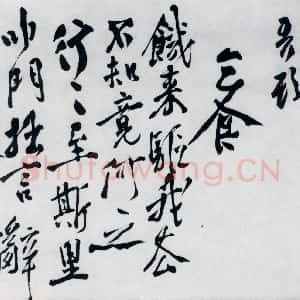 乞食
餓来驅我去
不知竟何之
行〻至斯里
叩門拙言辭
Shufawang.CN